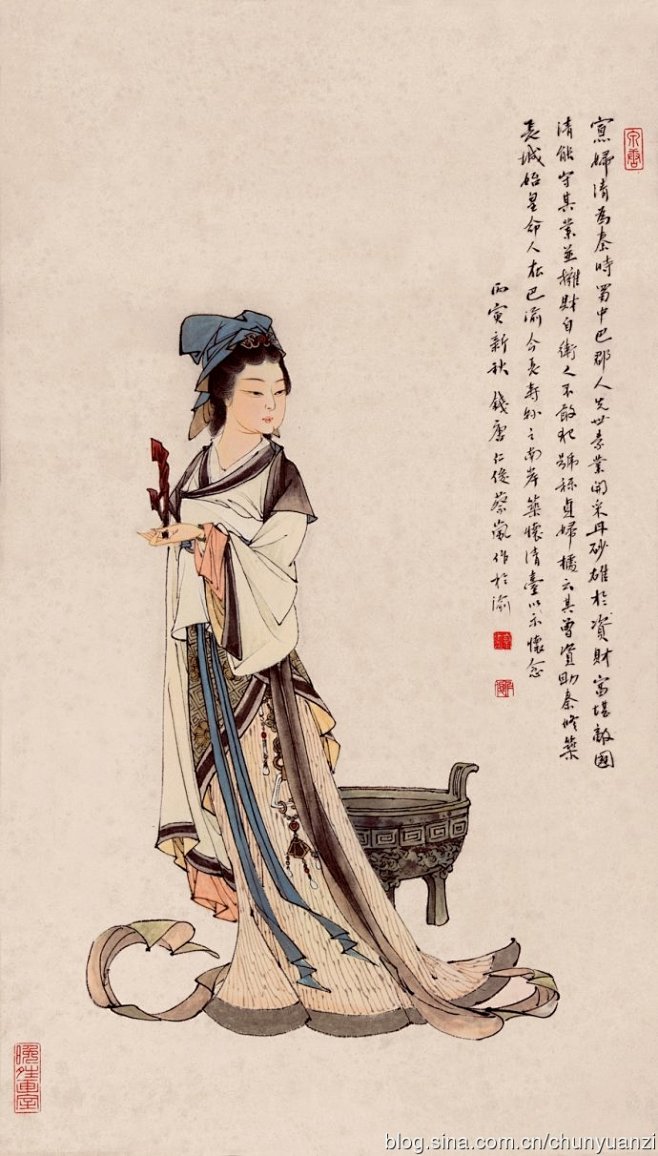 寡婦清為秦時蜀中巴郡人先世素業開采丹砂雄於資財富堪敵國
清能守其業並擁財自衛人不敢犯號称貞婦據云其曾資助秦修築
長城始皇命人在巴渝今長寿縣之南岸築懷清臺以示懷念
丙寅新秋錢唐仁俊蔡嵐作於渝
blog.sina.com.cn/chunyuanzi